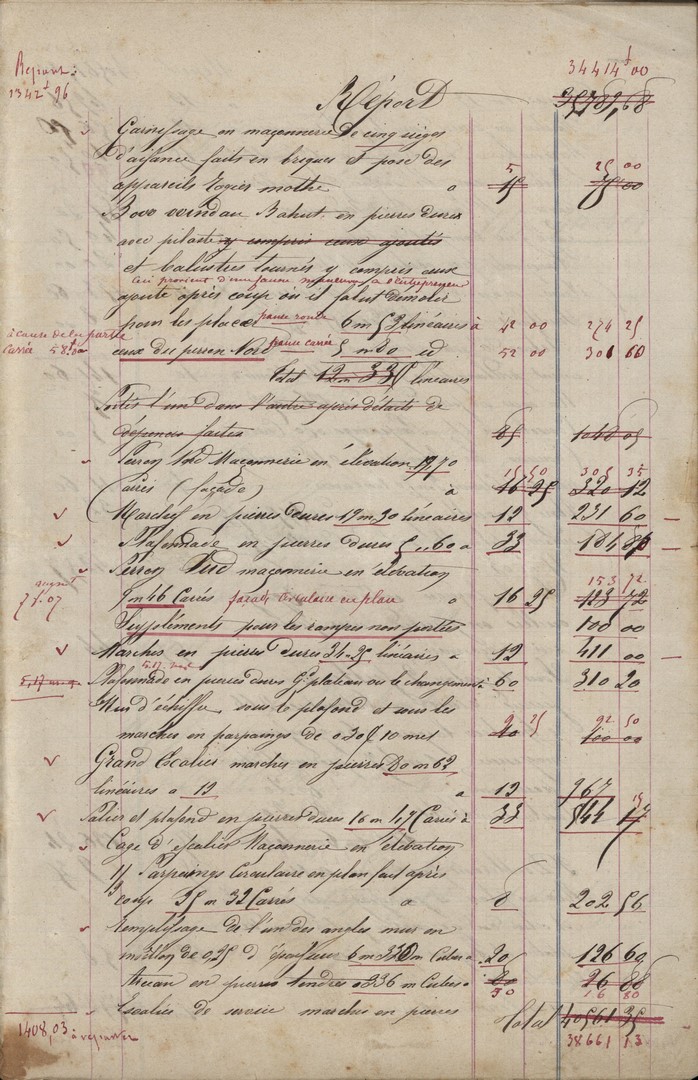 Report
34414 f 00
35789,68
1342 f 96
Garnissage en maçonnerie de cinq sièges
d'aisance faits en briques et pose des
appareils Rogier mothe a 5 25 00
15 75 00
Bow window Bahut en pierres dures
avec pilastre y compris ceux ajoutés
et balustres tournés y compris ceux
qui provient d'une fausse manœuvre à l'entrepreneur
ajouté après coup où il falut démolir
pour les placer 6 m 53 linéaires à 42 00 274 25
à cause de la partie
carrée 5.80
ceux du perron Nord 5 m 80 id 52 00 301 60
total 12 m 33 linéaires
Portés l'un dans l'autre après détails de
dépences faites 85 1048 05
Perron Nord Maçonnerie en élévation 19,70
15 50 305 35
Carrés (façade) à 16 25 320 12
Marches en pierres dures 19 m 30 linéaires 12 231 60
Plafonnade en pierres dures 5,,60 a 33 184 80
Perron Sud maçonnerie en élévation
71.07
153 72
9 m 46 Carrés façade circulaire en plan a 16 25 123 72
Suppléments pour les rampes non portées 100 00
Marches en pierres dures 34-25 linéaires a 12 411 00
5.17
Plafonnade en pierres dures Gd plateau ou le changement a 60 310 20
Mur d'échiffre sous le plafond et sous les
9 25 92 50
marches en parpaings de 0 20 f 10 mes 10 100 00
Grand Escalier marches en pierres 80 m 62
linéaires a 12 a 12 967
Palier et plafond en pierres dures 16 m 47 Carrés à 33 544 17
Cage d'escalier Maçonnerie en élévation
Parpaings Circulaire en plan fait après
coup 35 m 32 Carrés a 8 202 56
Remplissage de l'un des angles mur en
moëllon de 0,25 d'épaisseur 6 m 330 m Cubes a 20 126 60
en pierres tendres 0 336 m Cubes a 80 26 88
50 16 80
Escalier de service marches en pierres
Total 40561 35
38661 13
1408,03 à reporter